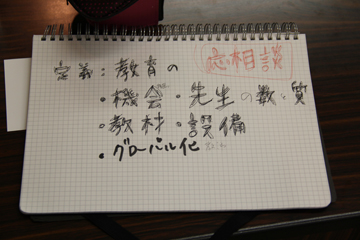 応相談
定義：教育の
・機会・先生の数と質
・教材・設備
・グローバル化